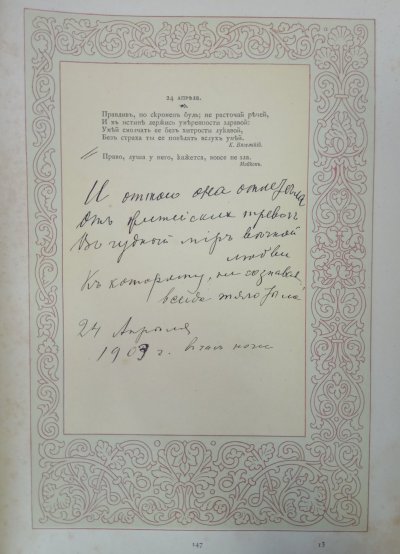 24 АПРѢЛЯ.
Правдивъ, но скроменъ будь; не расточай рѣчей,
И въ истинѣ держись умѣренности здравой:
Умѣй смолчать ее безъ хитрости лукавой,
Безъ страха ты ее повѣдать вслухъ умѣй.
К. Вяземскій.
Право, луша у него, кажется, вовсе не зла.
Майковъ.
И оттого она отлетѣла
Отъ житейскихъ тревогъ
Въ чудный міръ вѣчной
любви
Къ которому, не сознавая,
всегда тяготѣла
24 Апрѣля
1903 г. ночи
147
13